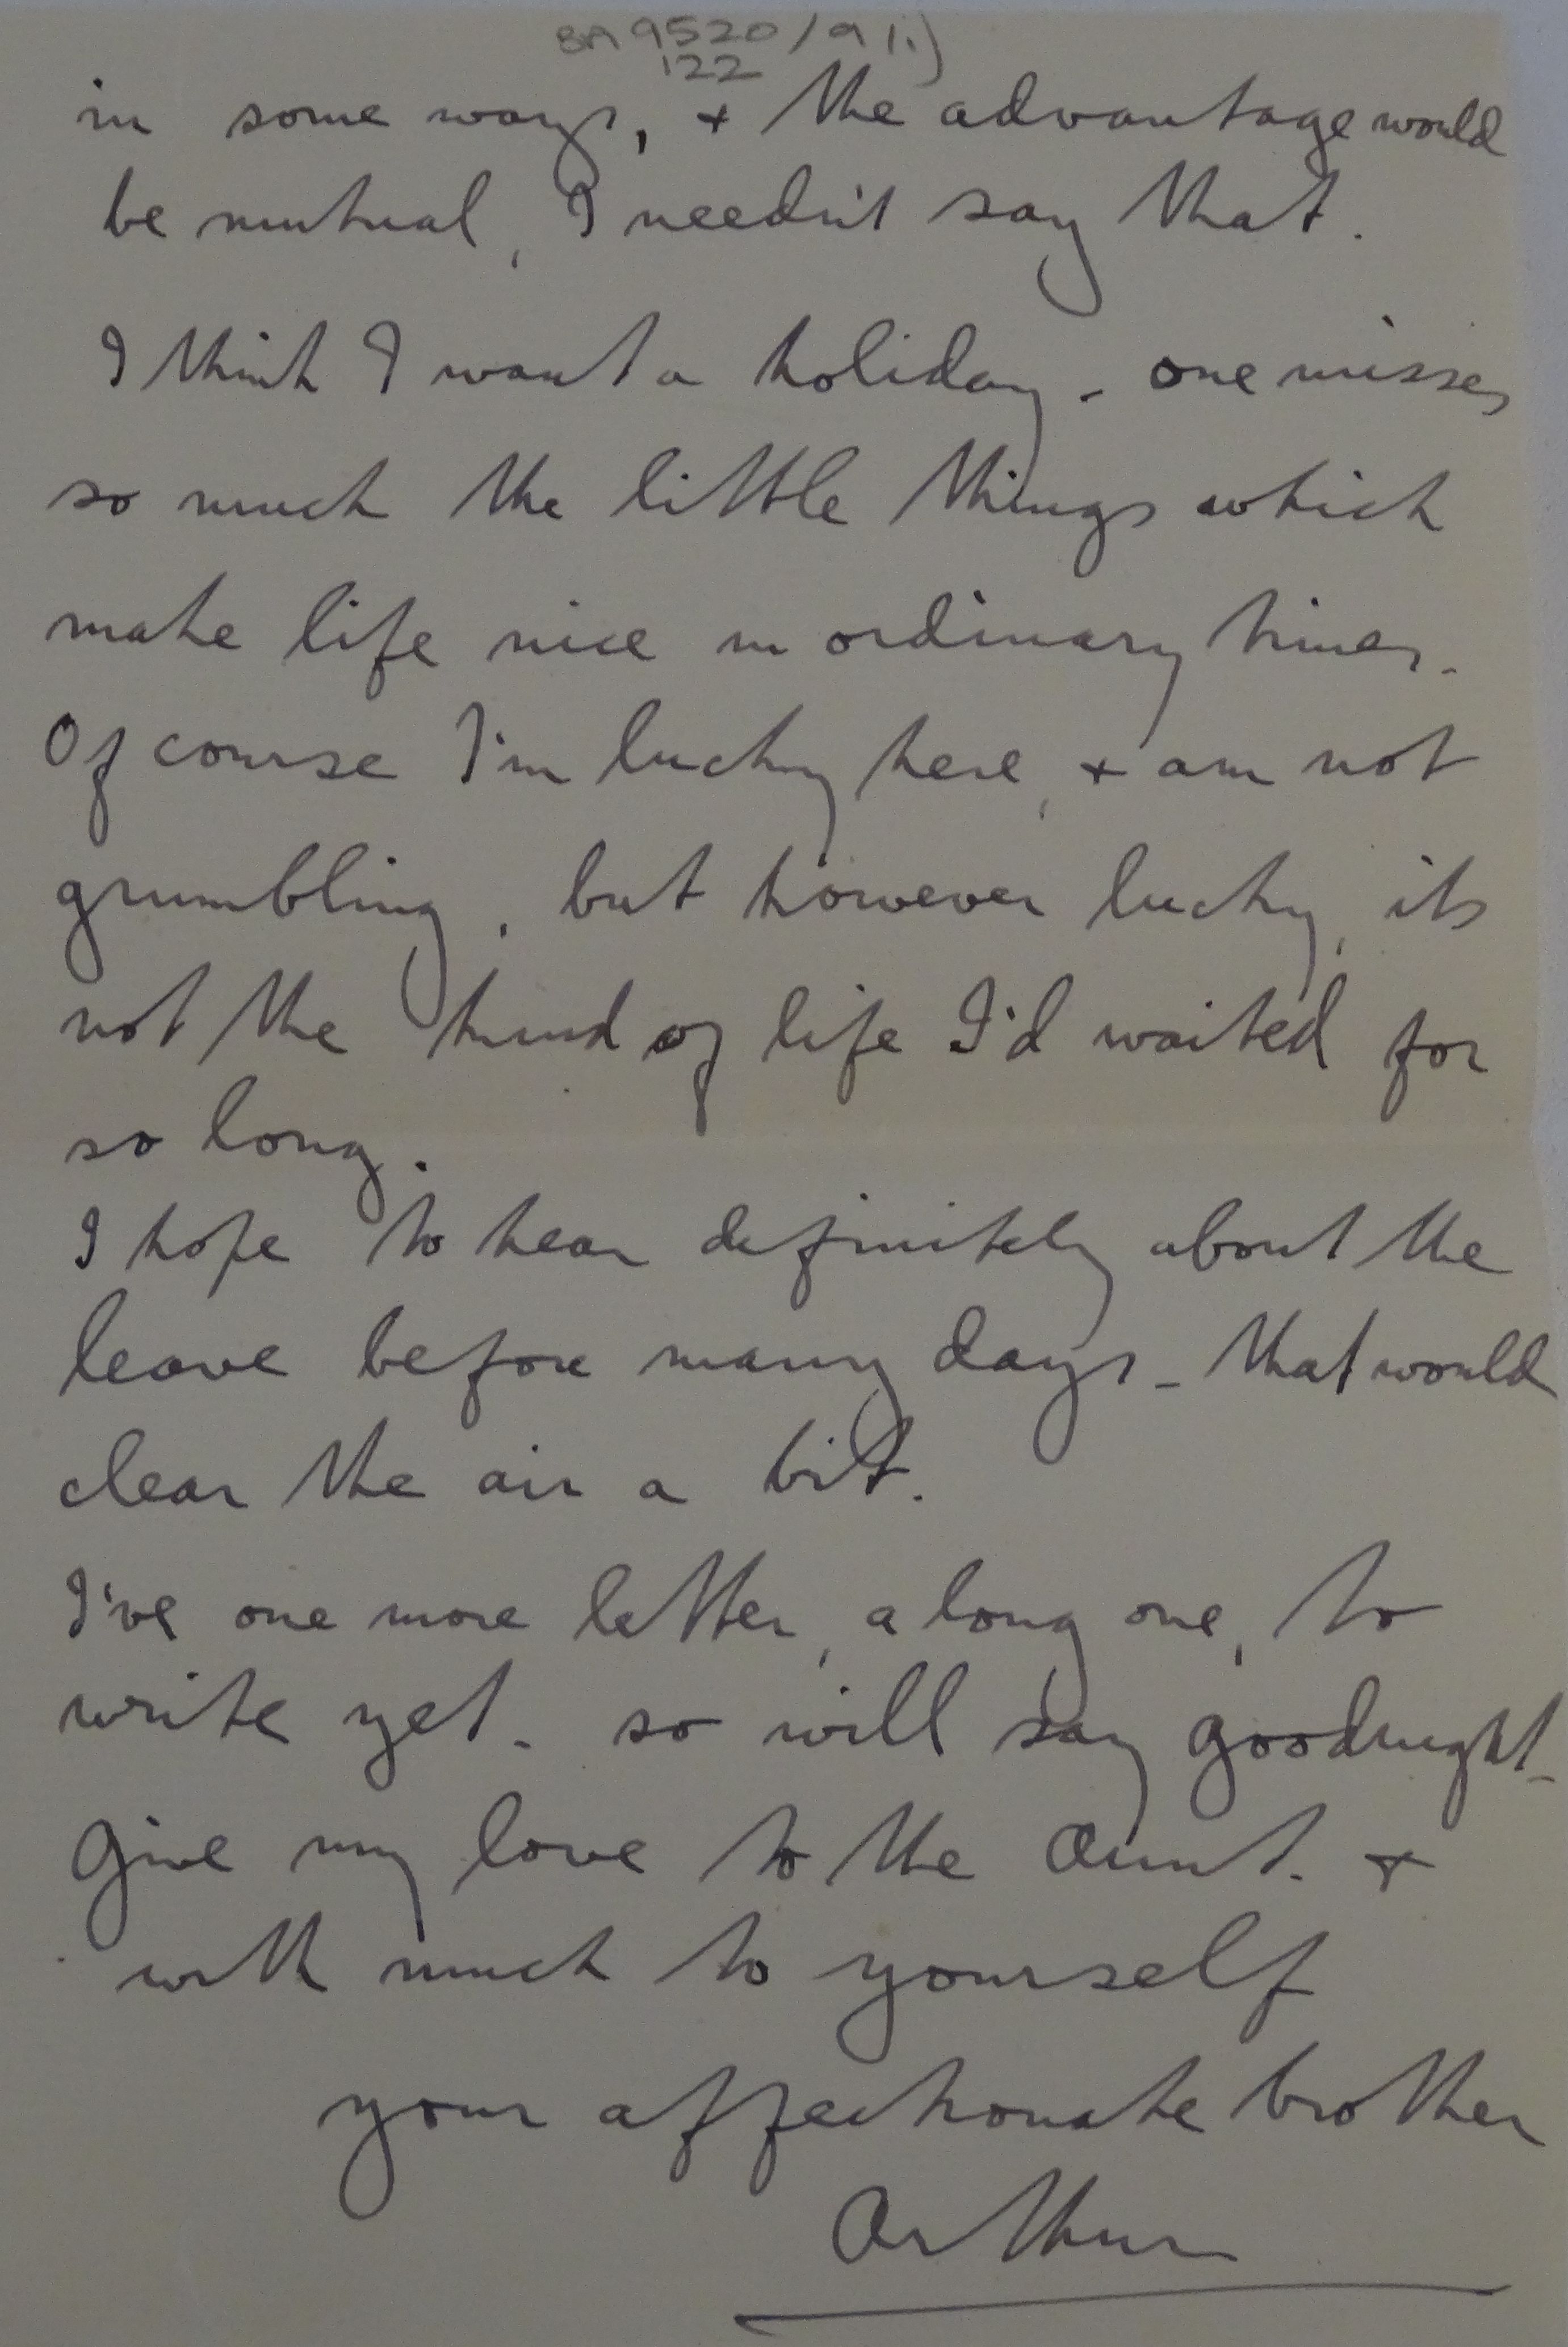 BA 9520/9(i)
122
in some ways, + the advantage would
be mutual, I needn't say that.
I think I want a holiday - one misses
so much the little things which
make life nice in ordinary times.
Of course I'm lucky here, + am not
grumbling, but however lucky, its
not the kind of life I'd waited for
so long.
I hope to hear definitely about the
leave before many days - that would
clear the air a bit.
I've one more letter, a long one, to
write yet - so will say goodnight -
Give my love to the Aunt. +
with much to yourself
your affectionate brother
Arthur